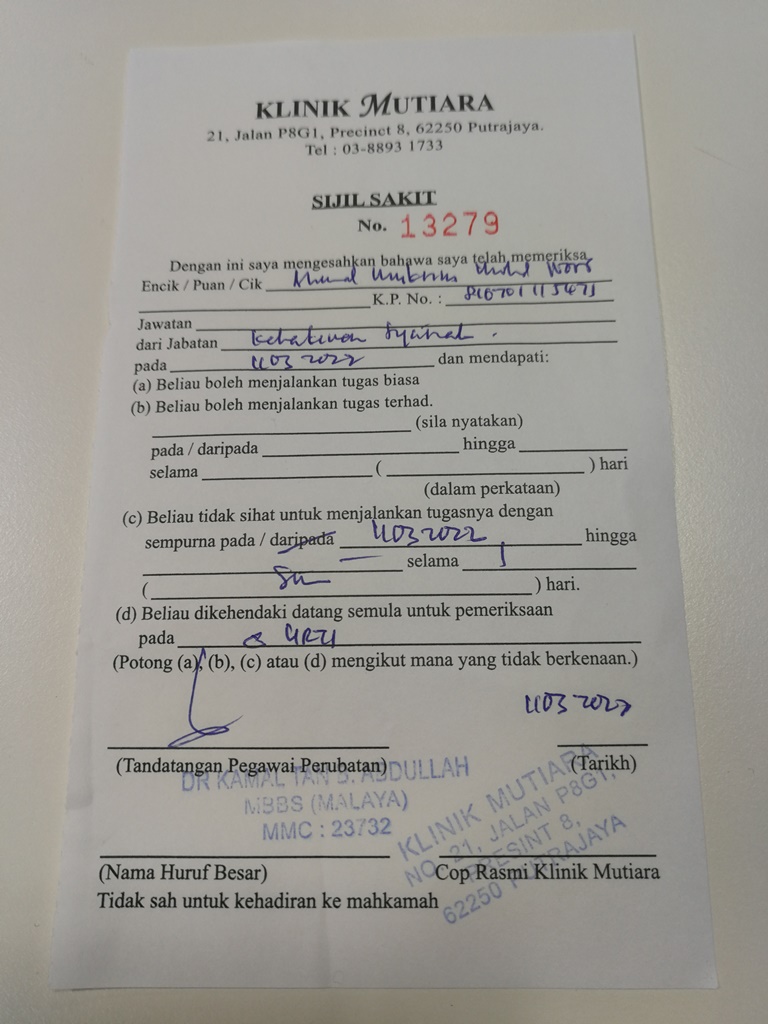 KLINIK MUTIARA
21, Jalan P8G1, Precinct 8, 62250 Putrajaya.
Tel : 03-8893 1733
SIJIL SAKIT
No. 13279
Dengan ini saya mengesahkan bahawa saya telah memeriksa
Encik / Puan / Cik
K.P. No. :
Jawatan
dari Jabatan
pada dan mendapati:
(a) Beliau boleh menjalankan tugas biasa
(b) Beliau boleh menjalankan tugas terhad.
(sila nyatakan)
pada / daripada hingga
selama ( ) hari
(dalam perkataan)
(c) Beliau tidak sihat untuk menjalankan tugasnya dengan
sempurna pada / daripada hingga
selama 1
( ) hari.
(d) Beliau dikehendaki datang semula untuk pemeriksaan
pada URTI
(Potong (a), (b), (c) atau (d) mengikut mana yang tidak berkenaan.)
(Tandatangan Pegawai Perubatan) (Tarikh)
DR KAMAL TAN B. ABDULLAH
MBBS (MALAYA)
MMC : 23732
KLINIK MUTIARA
NO. 21, JALAN P8G1,
PRESINT 8,
62250 PUTRAJAYA
(Nama Huruf Besar) Cop Rasmi Klinik Mutiara
Tidak sah untuk kehadiran ke mahkamah